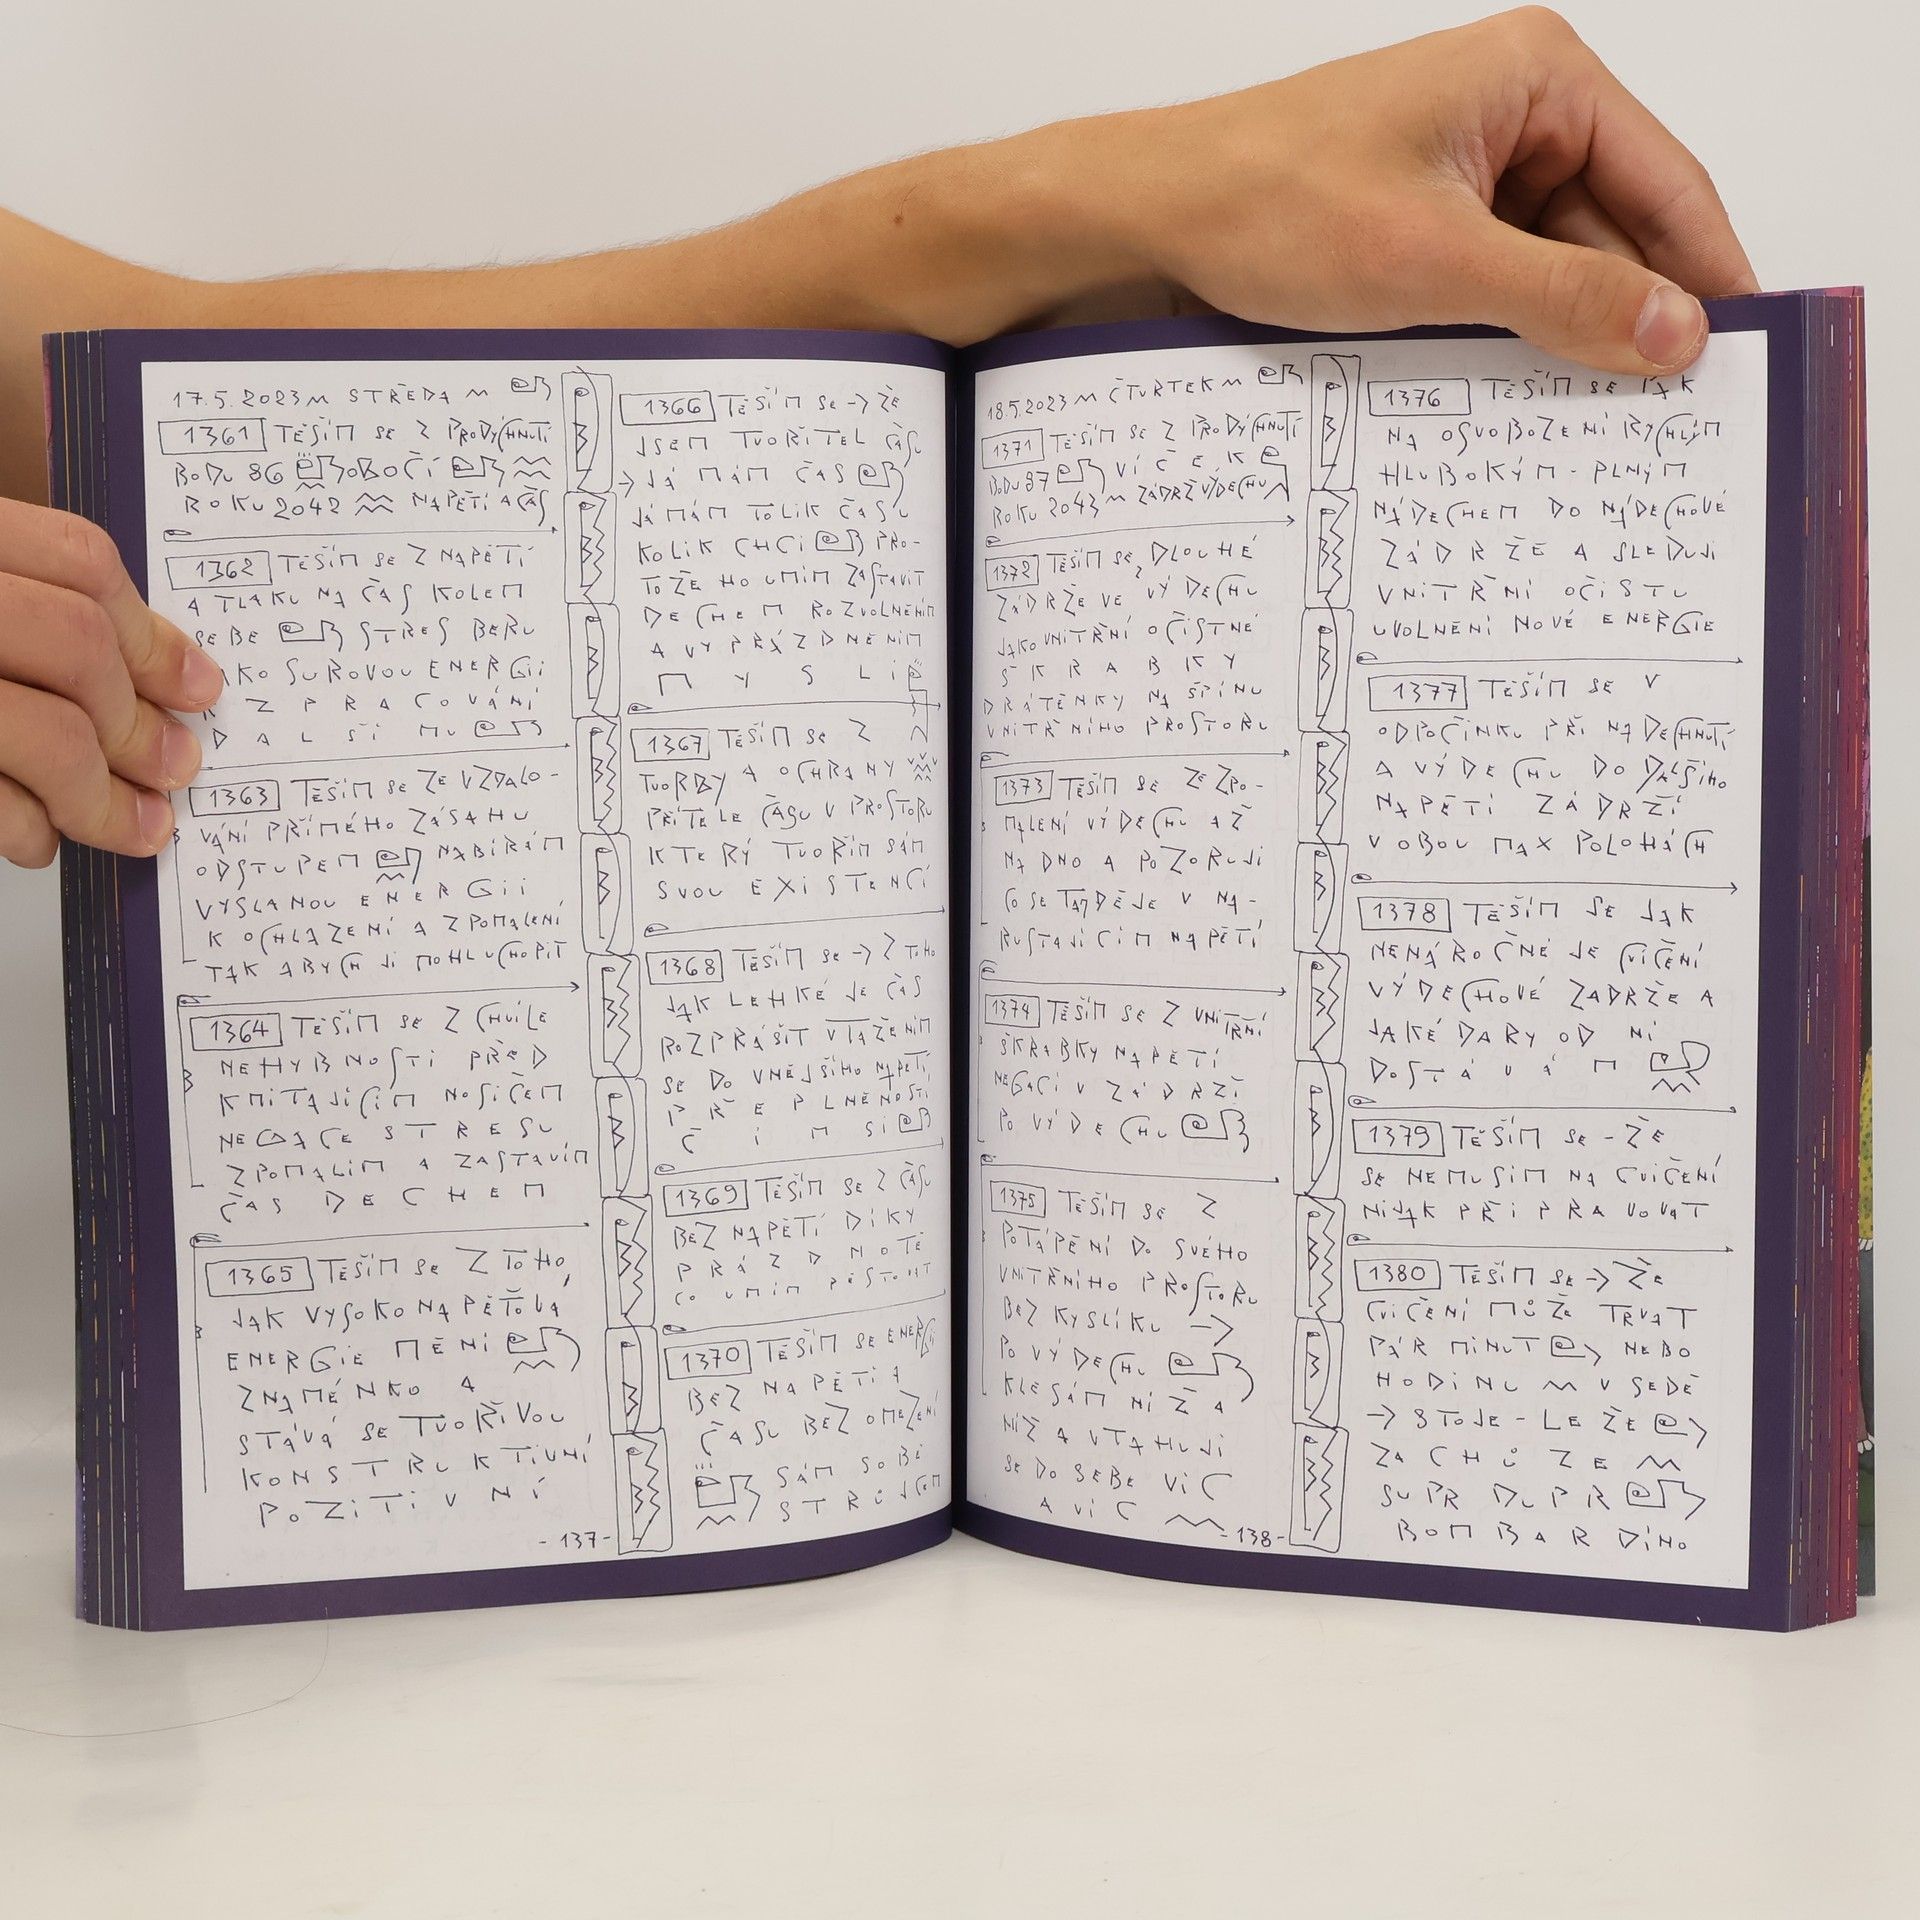 17.5.2023 STŘEDA
1361 TĚŠÍM SE Z PRODÝCHNUTÍ
BODU 86 OBOČÍ
ROKU 2042 NAPĚTÍ A ČAS
1362 TĚŠÍM SE Z NAPĚTÍ
A TLAKU NA ČAS KOLEM
SEBE STRES BERU
JAKO SUROVOU ENERGII
K ZPRACOVÁNÍ
DALŠÍMU
1363 TĚŠÍM SE ZE VZDALO-
VÁNÍ PŘÍMÉHO ZÁSAHU
ODSTUPEM NABÍRÁM
VYSLANOU ENERGII
K OCHLAZENÍ A ZPOMALENÍ
TAK ABYCH JI MOHL UCHOPIT
1364 TĚŠÍM SE Z CHVÍLE
NEHYBNOSTI PŘED
KMITAJÍCÍM NOSIČEM
NEGACE STRESU
ZPOMALÍM A ZASTAVÍM
ČAS DECHEM
1365 TĚŠÍM SE Z TOHO,
JAK VYSOKONAPĚŤOVÁ
ENERGIE MĚNÍ
ZNAMÉNKO A
STÁVÁ SE TVOŘIVOU
KONSTRUKTIVNÍ
POZITIVNÍ
1366 TĚŠÍM SE -> ŽE
JSEM TVOŘITEL ČASU
-> JÁ MÁM ČAS
JÁ MÁM TOLIK ČASU
KOLIK CHCI PRO-
TOŽE HO UMÍM ZASTAVIT
DECHEM ROZVOLNĚNÍM
A VYPRÁZDNĚNÍM
MYSLI
1367 TĚŠÍM SE Z
TVORBY A OCHRANY
PŘÍTELE ČASU V PROSTORU
KTERÝ TVOŘÍM SÁM
SVOU EXISTENCÍ
1368 TĚŠÍM SE -> Z TOHO
JAK LEHKÉ JE ČAS
ROZPRÁŠIT VTAŽENÍM
SE DO VNĚJŠÍHO NAPĚTÍ
PŘEPLNĚNOSTI
ČÍMSI
1369 TĚŠÍM SE Z ČASU
BEZ NAPĚTÍ DÍKY
PRÁZDNOTĚ
CO UMÍM PĚSTOVAT
1370 TĚŠÍM SE ENERGIÍ
BEZ NAPĚTÍ A
ČASU BEZ OMEZENÍ
SÁM SOBĚ
STRŮJCEM
-137-
18.5.2023 ČTVRTEK
1371 TĚŠÍM SE Z PRODÝCHNUTÍ
BODU 87 VÍČEK
ROKU 2043 ZÁDRŽ VÝDECHU
1372 TĚŠÍM SE Z DLOUHÉ
ZÁDRŽE VE VÝDECHU
JAKO VNITŘNÍ OČISTNÉ
ŠKRABKY
DRÁTĚNKY NA ŠPÍNU
VNITŘNÍHO PROSTORU
1373 TĚŠÍM SE ZE ZPO-
MALENÍ VÝDECHU AŽ
NA DNO A POZORUJI
CO SE TAM DĚJE V NA-
RŮSTAJÍCÍM NAPĚTÍ
1374 TĚŠÍM SE Z VNITŘNÍ
ŠKRABKY NAPĚTÍ
NEGACÍ V ZÁDRŽI
PO VÝDECHU
1375 TĚŠÍM SE Z
POTÁPĚNÍ DO SVÉHO
VNITŘNÍHO PROSTORU
BEZ KYSLÍKU ->
PO VÝDECHU
KLESÁM NÍŽ A
NÍŽ A VTAHUJI
SE DO SEBE VÍC
A VÍC
-138-
1376 TĚŠÍM SE JAK
NA OSVOBOZENÍ RYCHLÝM
HLUBOKÝM - PLNÝM
NÁDECHEM DO NÁDECHOVÉ
ZÁDRŽE A SLEDUJI
VNITŘNÍ OČISTU
UVOLNĚNÍ NOVÉ ENERGIE
1377 TĚŠÍM SE V
ODPOČINKU PŘI NADECHNUTÍ
A VÝDECHU DO DALŠÍHO
NAPĚTÍ ZÁDRŽÍ
V OBOU MAX POLOHÁCH
1378 TĚŠÍM SE JAK
NENÁROČNÉ JE CVIČENÍ
VÝDECHOVÉ ZADRŽE A
JAKÉ DARY OD NÍ
DOSTÁVÁM
1379 TĚŠÍM SE - ŽE
SE NEMUSÍM NA CVIČENÍ
NIJAK PŘIPRAVOVAT
1380 TĚŠÍM SE -> ŽE
CVIČENÍ MŮŽE TRVAT
PÁR MINUT NEBO
HODINU V SEDĚ
-> STOJE - LEŽE
ZA CHŮZE
SUPR DUPR
BOMBARDINO